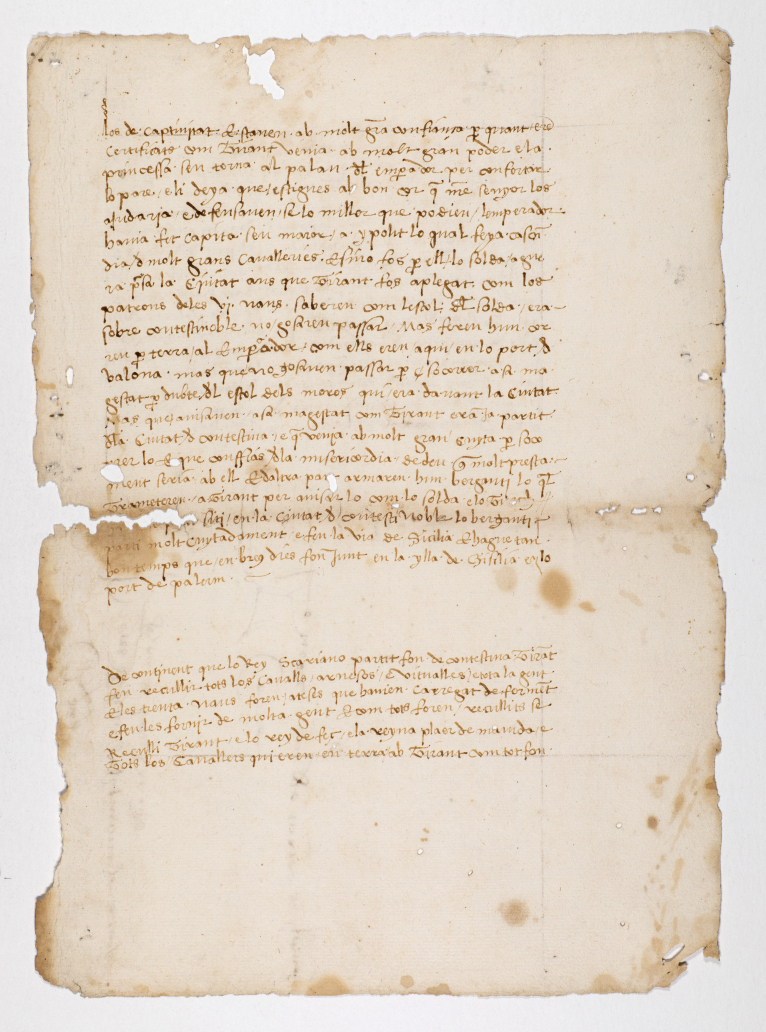 los de captivitat · Estaven · ab · molt gra confiança p quant · ere
Certificats com Tirant venia · ab molt · gran poder e la ·
princessa · seu torna · al palau · dl empador per confortar
lo pare · e li deya · que / estigues ab bon cor q nre senyor los
ajudaria · e defensaven · se lo millor que podien / lemperador ·
havia fet capita seu maior / a · ypolit lo qual feya cascu
dia / d molt grans Cavalleries · E si no fos p ell / lo solda / ague
ra psa la Ciutat ans que Tirant fos aplegat · com los
patrons de les vi · naus · saberen com lestol · dl solda / era
sobre contestinoble · no gosaren passar / Mas feren hun cor
reu p terra / al Emperador · com ells eren / aqui / en lo port / d
valona · mas que no gosaven · passar p socorrer · a sa · ma
gestat p dubte / dl estol dels moros qui / era · davant la Ciutat
Mas que / avisaven · a sa magestat com Tirant era ja partit
dla Ciutat d contestina / e q venia · ab molt gran cuyta p soco
rrer lo · E que confias dla misericordia · de deu q molt presta ·
ment seria · ab ell E daltra part armaren hun · berganti lo ql
Trameteren · a Tirant per avisar lo com lo solda · e lo
siti / en la Ciutat / d contestinoble lo berganti
parti molt cuytadament e feu la via de Sicilia E hague tan ·
bon temps que / en breus dies fon Junt en la ylla de Sicilia en lo
port de palerm ·
De continent que lo Rey Scariano partit fon de contestina Tirat
feu recullir tots los Cavalls / arnesos / e vitualles / e tota la gent ·
E les trenta naus foren / ateses que havien · Carregat de forment
e feu les fornir de molta · gent · E com tots foren / recullits se
Reculli Tirant e lo rey de feç / e la reyna plaer de mavida / e
Tots los Cavallers qui eren · en terra ab Tirant com tot fon ·